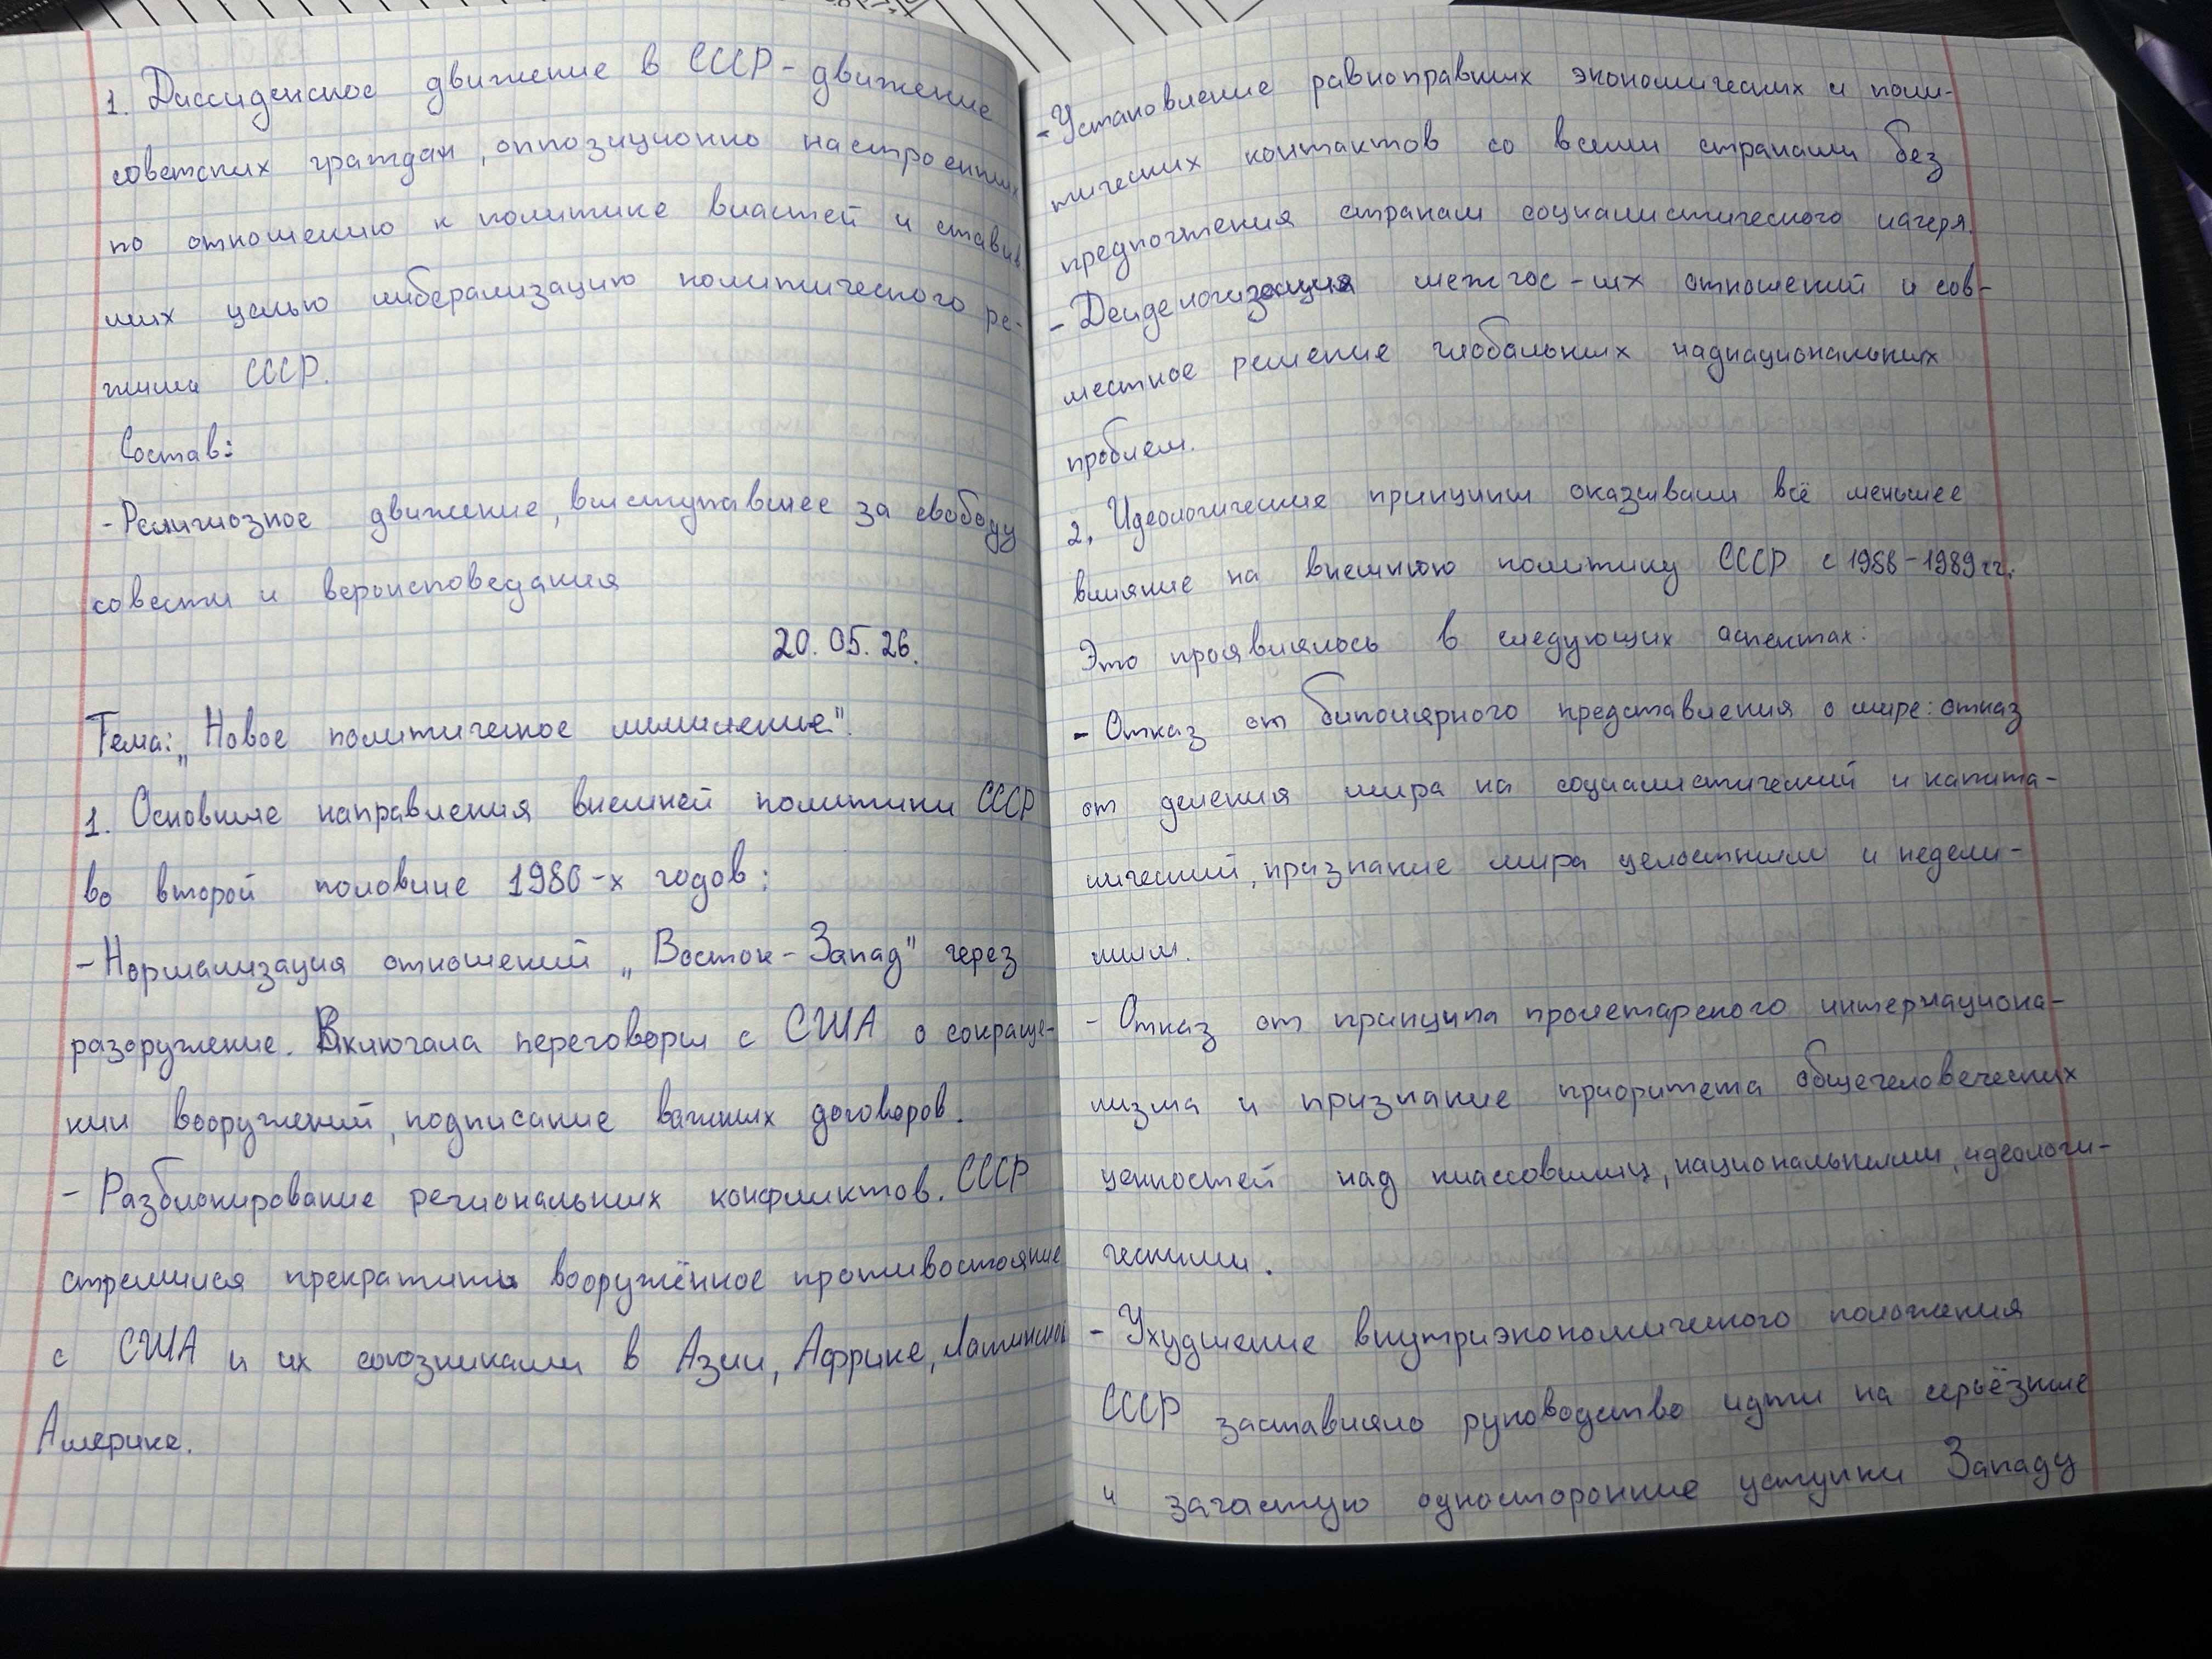 1. Диссиденское движение в СССР - движение
советских граждан, оппозиционно настроенных
по отношению к политике властей и ставив-
ших целью либерализацию политического ре-
жима СССР.
Состав:
- Религиозное движение, выступавшее за свободу
совести и вероисповедания
20.05.26.
Тема: „Новое политическое мышление".
1. Основные направления внешней политики СССР
во второй половине 1980-х годов:
- Нормализация отношений „Восток-Запад" через
разоружение. Включала переговоры с США о сокраще-
нии вооружений, подписание важных договоров.
- Разблокирование региональных конфликтов. СССР
стремился прекратить вооружённое противостояние
с США и их союзниками в Азии, Африке, Латинской
Америке.
- Установление равноправных экономических и поли-
тических контактов со всеми странами без
предпочтения странам социалистического лагеря.
- Деидеологизация межгос-ых отношений и сов-
местное решение глобальных наднациональных
проблем.
2. Идеологические принципы оказывали всё меньшее
влияние на внешнюю политику СССР с 1988-1989 гг.
Это проявлялось в следующих аспектах:
- Отказ от биполярного представления о мире: отказ
от деления мира на социалистический и капита-
лический, признание мира целостным и недели-
мым.
- Отказ от принципа пролетарского интернациона-
лизма и признание приоритета общечеловеческих
ценностей над классовыми, национальными, идеологи-
ческими.
- Ухудшение внутриэкономического положения
СССР заставляло руководство идти на серьёзные
и зачастую односторонние уступки Западу